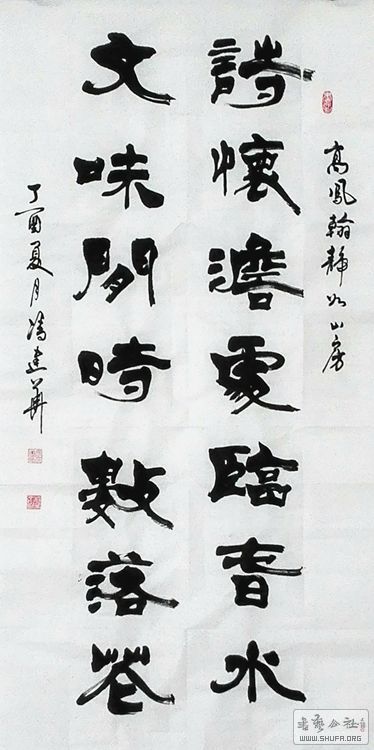 高鳳翰静如山房
詩懷澹處臨春水
文味閒時數落花
丁酉夏月馮建華
書藝公社
WWW.SHUFA.ORG